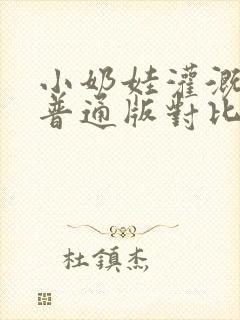 小奶娃灌溉
普通版對比
杜鎮杰